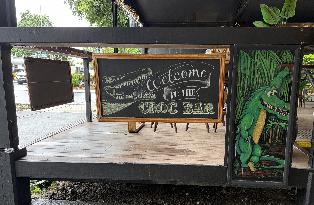 Welcome
TO THE
CROC BAR